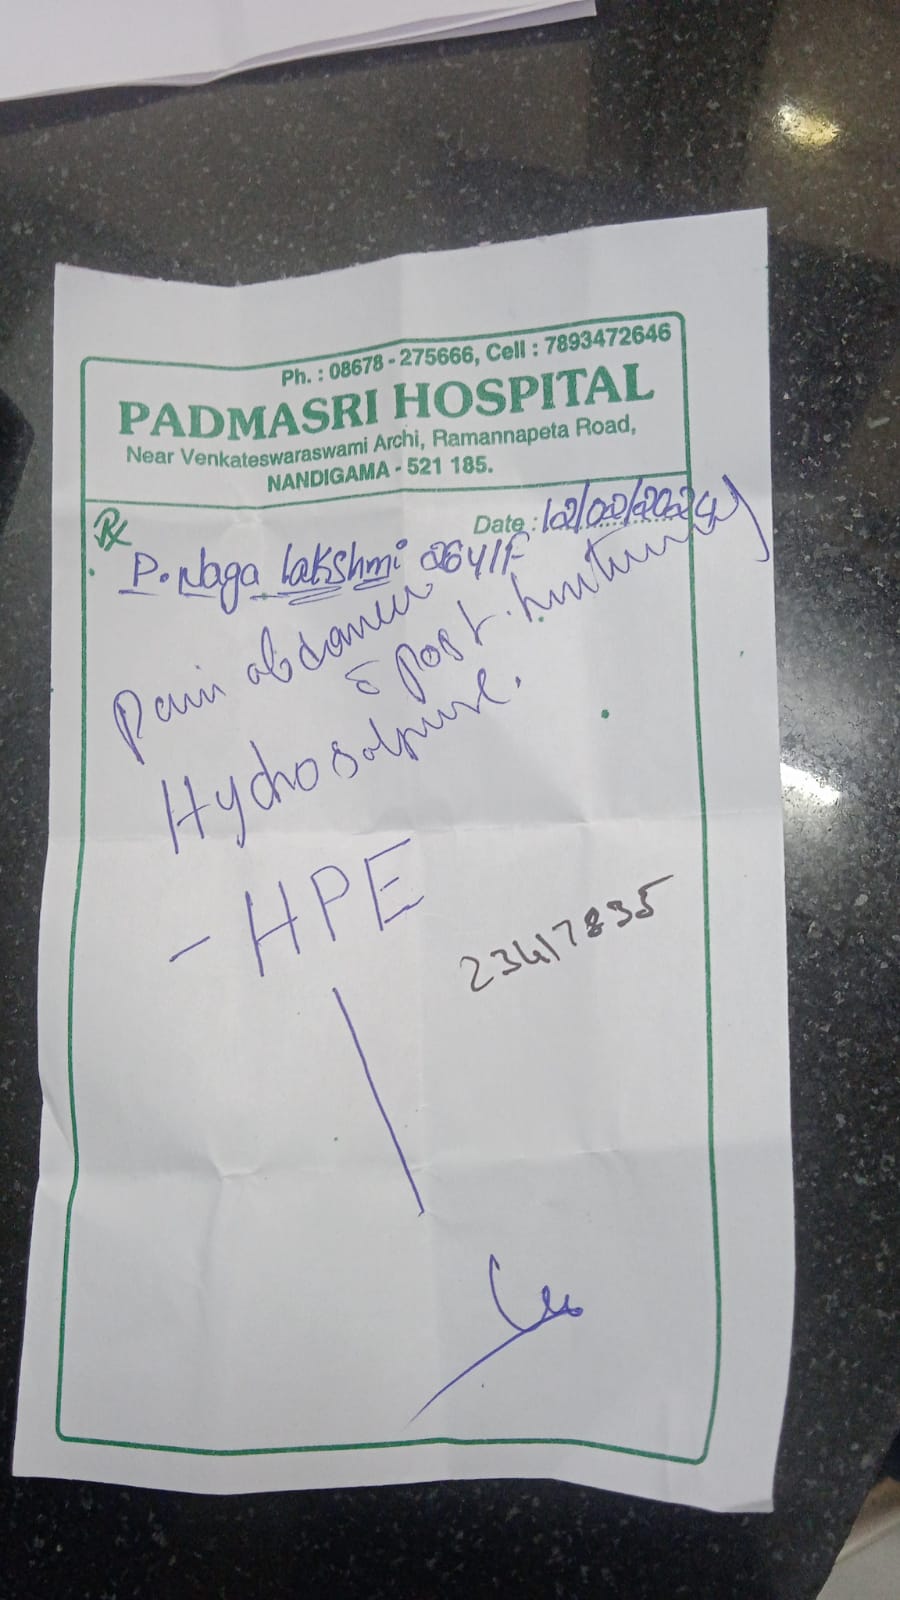 Ph. : 08678 - 275666, Cell : 7893472646
PADMASRI HOSPITAL
Near Venkateswaraswami Archi, Ramannapeta Road,
NANDIGAMA - 521 185.
Rx
Date : 12/02/2024
P. Naga lakshmi 26y/F
Pain abdomen
c̄ post.
Hydrosalpinx.
- HPE
23417835